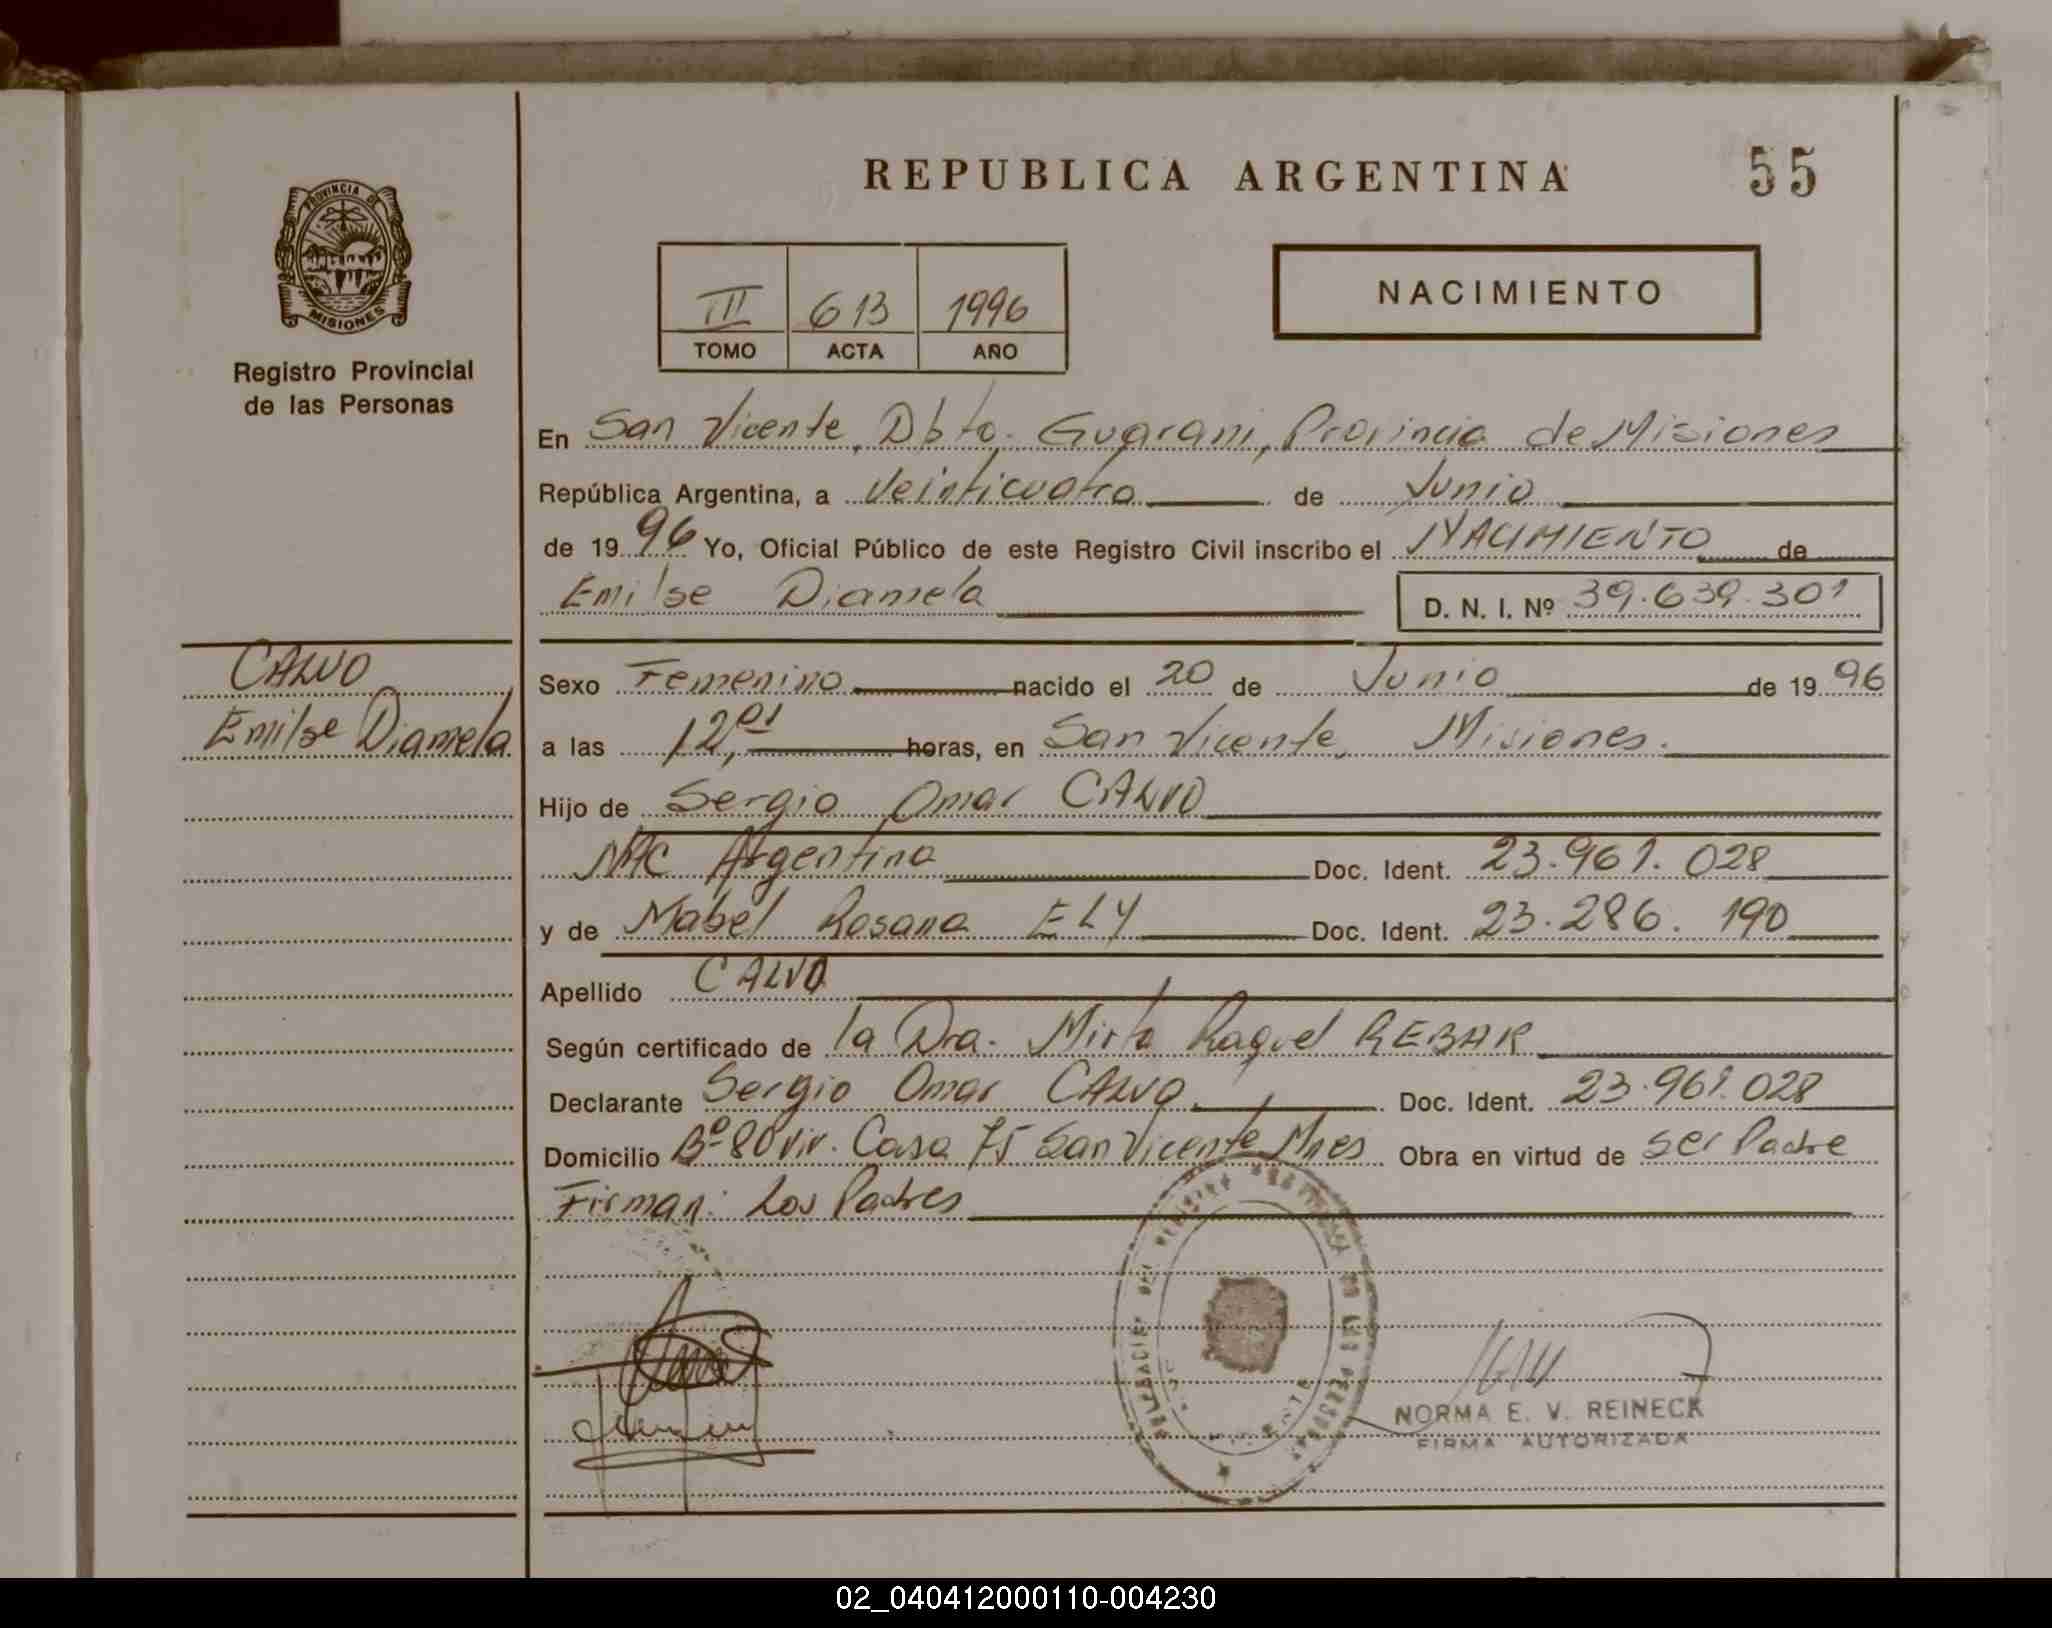 REPUBLICA ARGENTINA
55
PROVINCIA DE
MISIONES
Registro Provincial
de las Personas
III 613 1996
TOMO ACTA AÑO
NACIMIENTO
En San Vicente, Dpto. Guarani, Provincia de Misiones
República Argentina, a Veinticuatro de Junio
de 1996 Yo, Oficial Público de este Registro Civil inscribo el NACIMIENTO de
Emilse Diamela D. N. I. Nº 39.639.301
CALVO
Emilse Diamela
Sexo Femenino nacido el 20 de Junio de 1996
a las 12,01 horas, en San Vicente, Misiones.
Hijo de Sergio Omar CALVO
NAC Argentina Doc. Ident. 23.961.028
y de Mabel Rosana ELY Doc. Ident. 23.286.190
Apellido CALVO
Según certificado de la Dra. Mirta Raquel REBAK
Declarante Sergio Omar CALVO. Doc. Ident. 23.961.028
Domicilio Bº 80 Viv. Casa 75 San Vicente Mnes Obra en virtud de ser Padre
Firman: Los Padres
NORMA E. V. REINECK
FIRMA AUTORIZADA
02_040412000110-004230